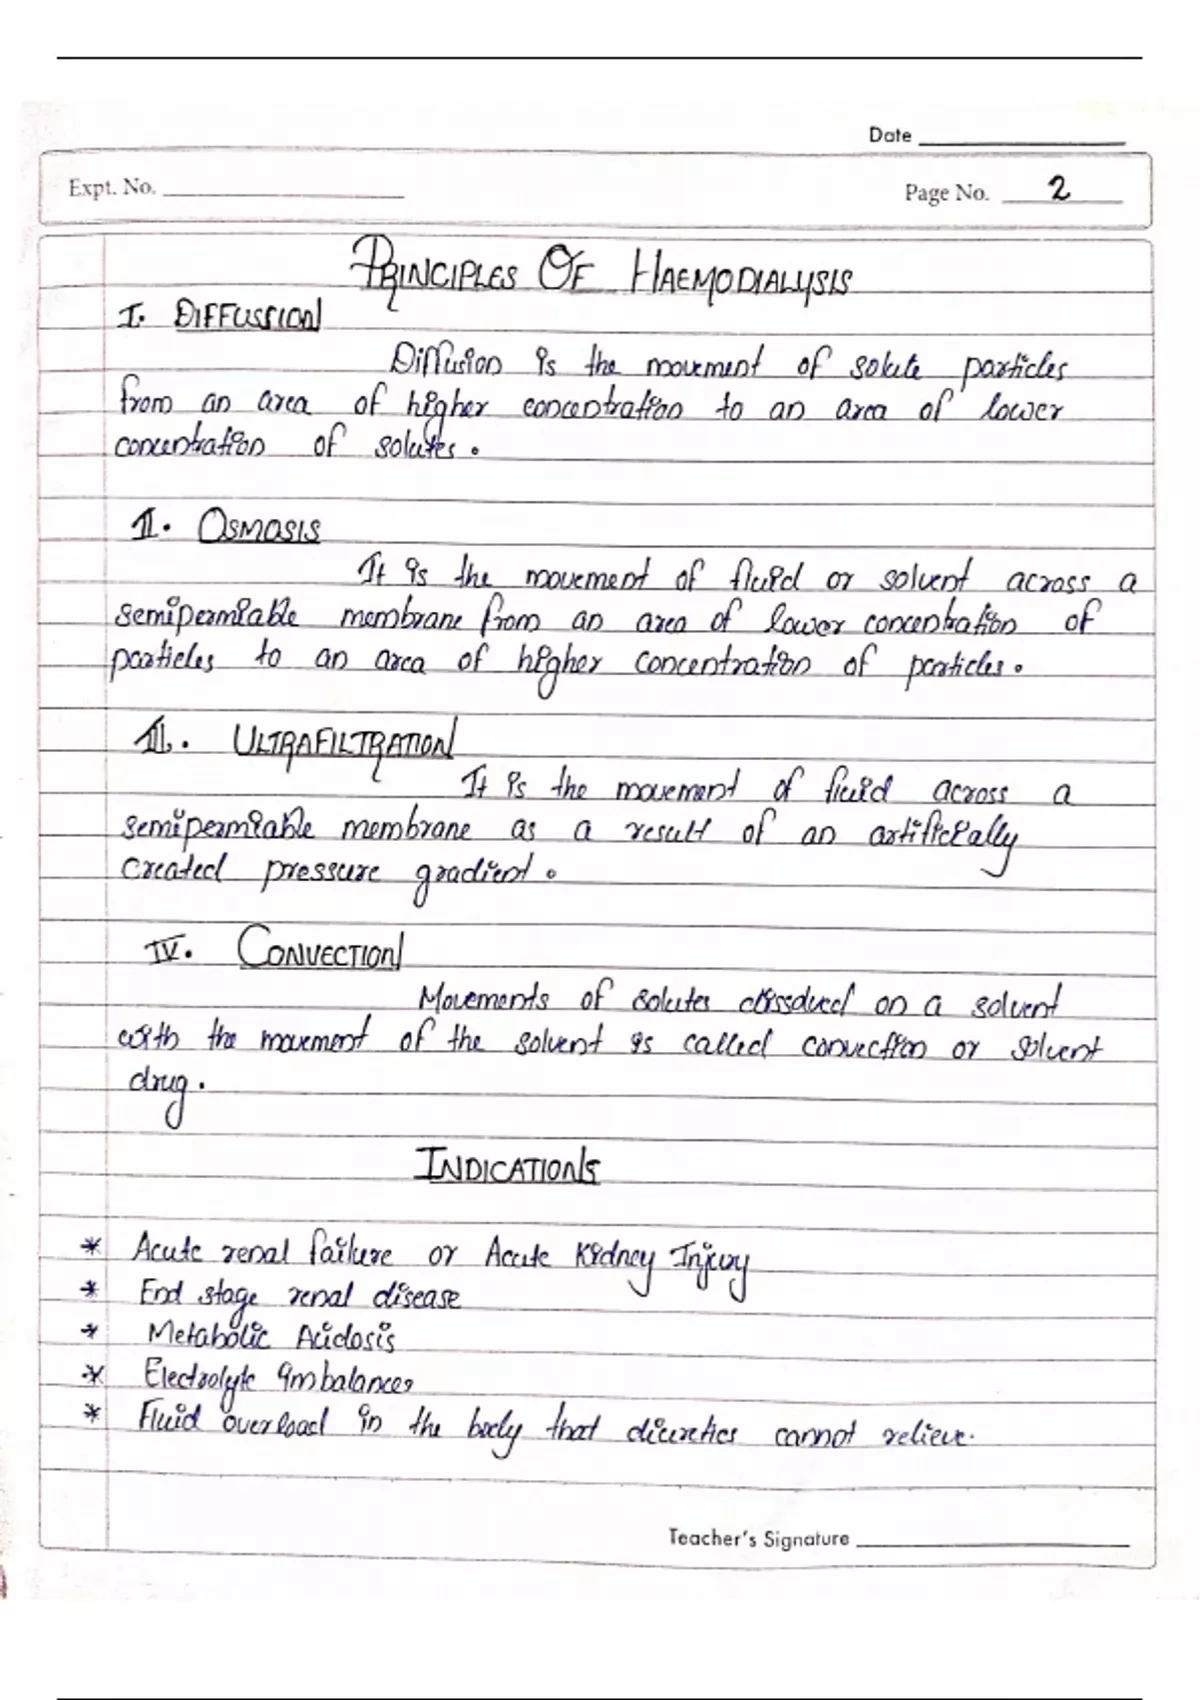 Date
Expt. No.
Page No. 2
PRINCIPLES OF HAEMODIALYSIS
I. DIFFUSSION
Diffusion is the movement of solute particles
from an area of higher concentration to an area of lower
concentration of solutes.
II. OSMOSIS
It is the movement of fluid or solvent across a
semipermiable membrane from an area of lower concentration of
particles to an area of higher concentration of particles.
III. ULTRAFILTRATION
It is the movement of fluid across a
semipermiable membrane as a result of an artificially
created pressure gradient.
IV. CONVECTION
Movements of solutes dissolved on a solvent
with the movement of the solvent is called convection or solvent
drug.
INDICATIONS
* Acute renal failure or Acute Kidney Injury
* End stage renal disease
* Metabolic Acidosis
* Electrolyte imbalances
* Fluid overload in the body that diuretics cannot relieve.
Teacher's Signature